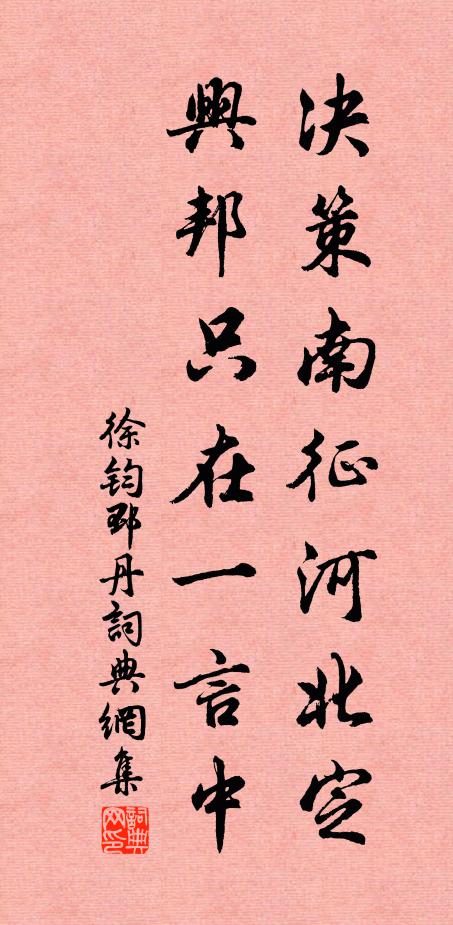 决策南征河北定
興邦只在一言中
徐钧郅丹詞典網集
詞典网印